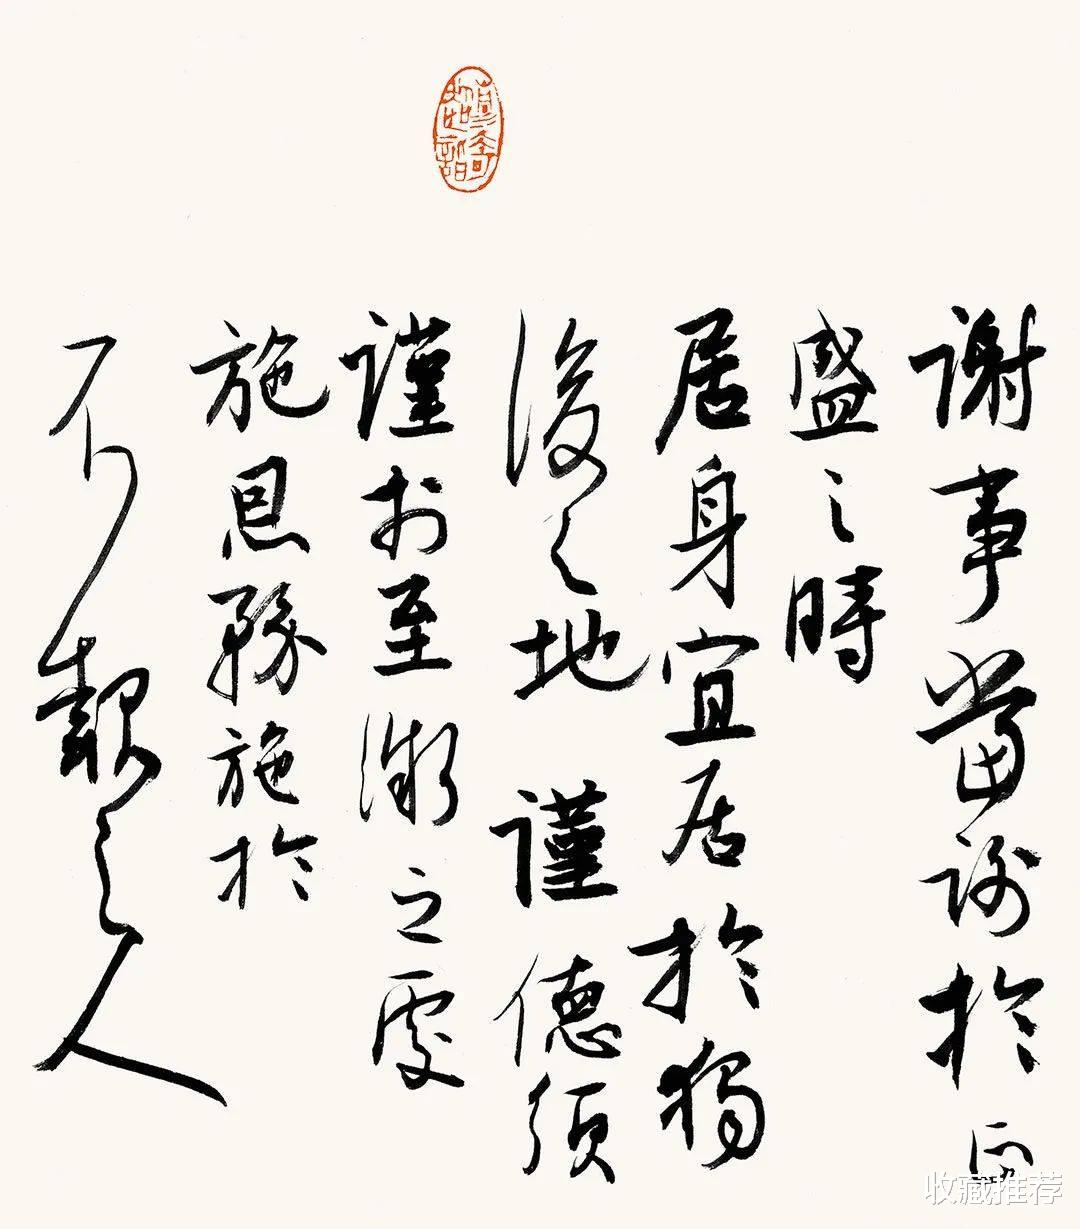 謝事當謝於正
盛之時
居身宜居於獨
後之地謹德須
謹於至微之處
施恩務施於
不報之人
收藏推荐